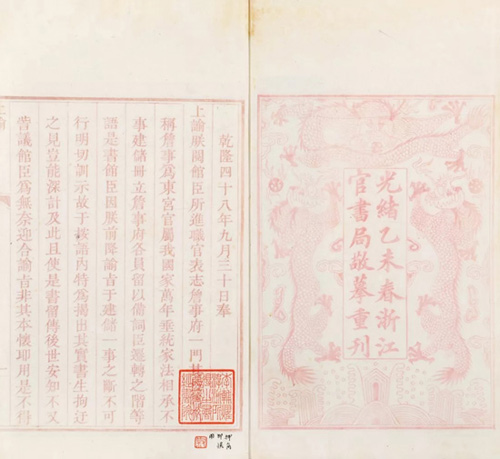 光緒乙未春浙江
官書局敬摹重刊
乾隆四十八年九月三十日奉
上諭朕閱館臣所進職官表志詹事府一門其
稱詹事爲東宮官屬我國家萬年垂統家法相承不
事建儲冊立詹事府各員留以備詞臣遷轉之階等
語是書館臣因朕前降諭旨于建儲一事之斷不可
行明切訓示故于按語內特爲揭出其實書生拘迂
之見豈能深計及此且使是書留傳後世安知不又
訾議館臣爲無奈迎合諭旨非其本懷卽用是不得